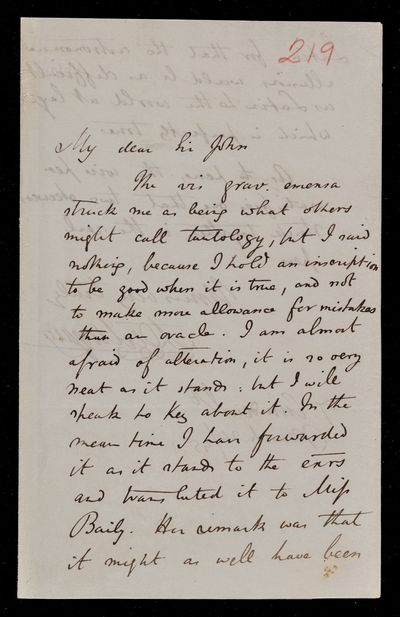 219
My dear Sir John
The vis grav. emensa
struck me as being what others
might call tautology, but I said
nothing, because I hold an inscription
to be good when it is true, and not
to make more allowance for mistakes
than an oracle. I am almost
afraid of alteration, it is so very
neat as it stands: but I will
speak to Key about it. In the
mean time I have forwarded
it as it stands to the exrs
and translated it to Miss
Baily. Her remark was that
it might as well have been